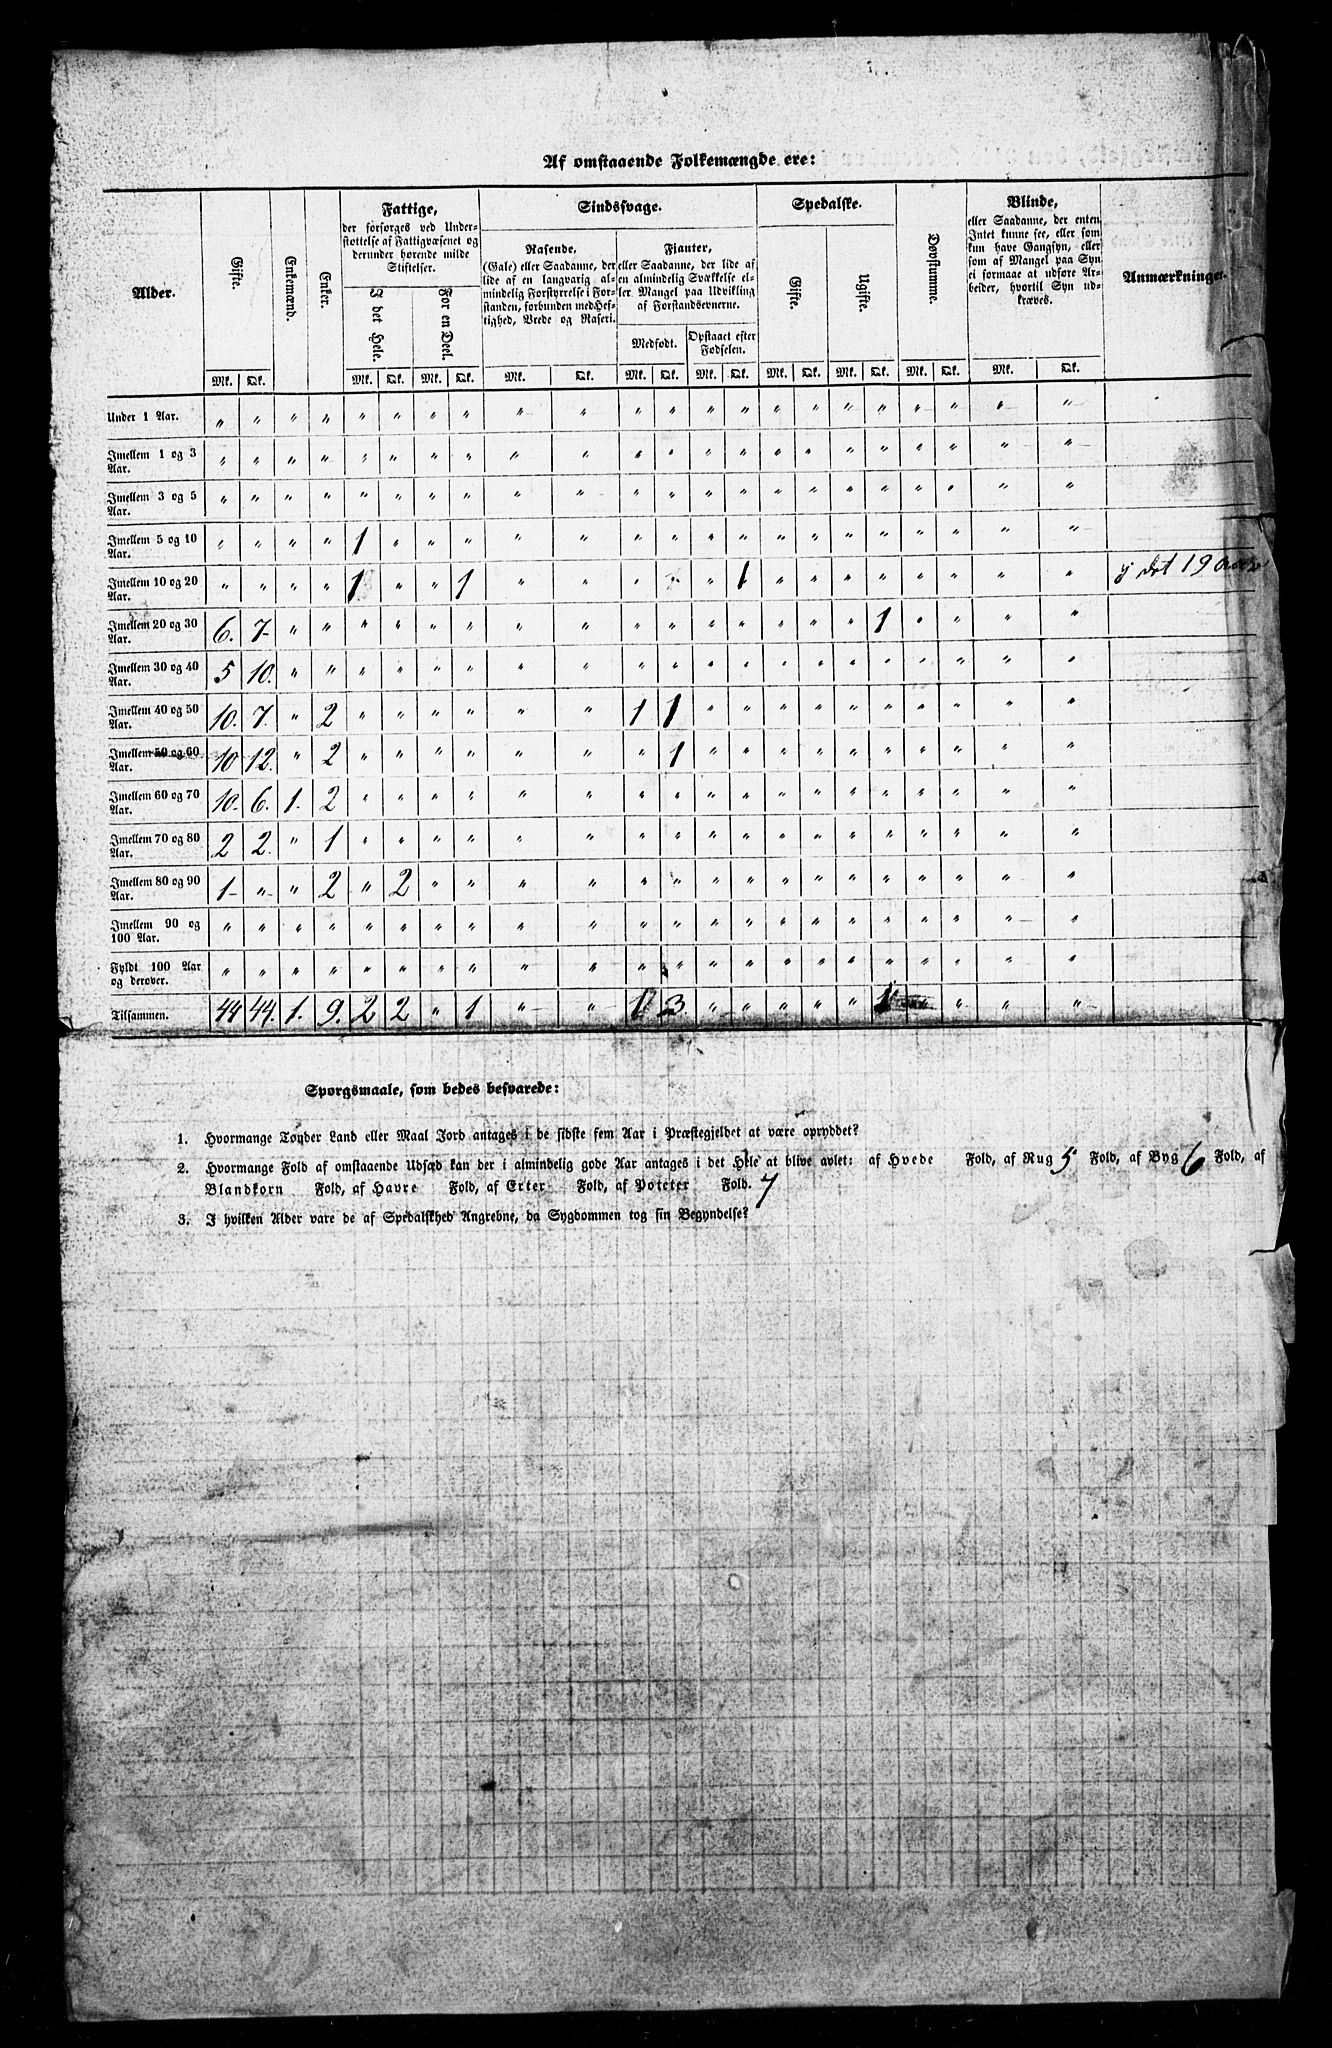 Af omstaaende Folkemængde ere:
Alder. Gifte. Enkemænd. Enker. Fattige, Sindssvage. Spedalske. Døvstumme. Blinde, Anmærkninger.
der forsørges ved Under-
støttelse af Fattigvæsenet og
derunder hørende milde
Stiftelser.
I det Hele. For en Deel.
Rasende,
(Gale) eller Saadanne, der
lide af en langvarig al-
mindelig Forstyrrelse i For-
standen, forbunden med Hef-
tighed, Vrede og Raseri.
Fjanter,
eller Saadanne, der lide af
en almindelig Svækkelse el-
ler Mangel paa Udvikling
af Forstandsevnerne.
Medfødt. Opstaaet efter
Fødselen.
Gifte. Ugifte.
eller Saadanne, der enten
Intet kunne see, eller som
kun have Gangsyn, eller
som af Mangel paa Syn
ei formaae at udføre Ar-
beider, hvortil Syn ud-
kræves.
Mk. Qk. Mk. Qk. Mk. Qk. Mk. Qk. Mk. Qk. Mk. Qk. Mk. Qk. Mk. Qk. Mk. Qk. Mk. Qk.
Under 1 Aar. " " " " " " " " " " " " " " " " " " " " " "
Imellem 1 og 3 Aar. " " " " " " " " " " " " " " " " " " " " " "
Imellem 3 og 5 Aar. " " " " " " " " " " " " " " " " " " " " " "
Imellem 5 og 10 Aar. " " " " 1 " " " " " " " " " " " " " " " " "
Imellem 10 og 20 Aar. " " " " 1 " " 1 " " " " " 1 " " " " " " " " j det 19
Imellem 20 og 30 Aar. 6. 7 " " " " " " " " " " " " " " " 1 " " " "
Imellem 30 og 40 Aar. 5 10. " " " " " " " " " " " " " " " " " " " "
Imellem 40 og 50 Aar. 10. 7. " 2 " " " " " " 1 1 " " " " " " " " " "
Imellem 50 og 60 Aar. 10 12. " 2 " " " " " " " 1 " " " " " " " " " "
Imellem 60 og 70 Aar. 10. 6. 1. 2 " " " " " " " " " " " " " " " " " "
Imellem 70 og 80 Aar. 2 2. " 1 " " " " " " " " " " " " " " " " " "
Imellem 80 og 90 Aar. 1 " " 2 " 2 " " " " " " " " " " " " " " " "
Imellem 90 og 100 Aar. " " " " " " " " " " " " " " " " " " " " " "
Fyldt 100 Aar og derover. " " " " " " " " " " " " " " " " " " " " " "
Tilsammen. 44 44. 1. 9. 2 2 " 1 " " 3 " " " " " 1 " " "
Spørgsmaale, som bedes besvarede:
1. Hvormange Tønder Land eller Maal Jord antages i de sidste fem Aar i Præstegjeldet at være opryddet?
2. Hvormange Fold af omstaaende Udsæd kan der i almindelig gode Aar antages i det Hele at blive avlet: af Hvede Fold, af Rug 5 Fold, af Byg 6 Fold, af
Blandkorn Fold, af Havre Fold, af Erter Fold, af Poteter Fold. 7
3. I hvilken Alder vare de af Spedalskhed Angrebne, da Sygdommen tog sin Begyndelse?